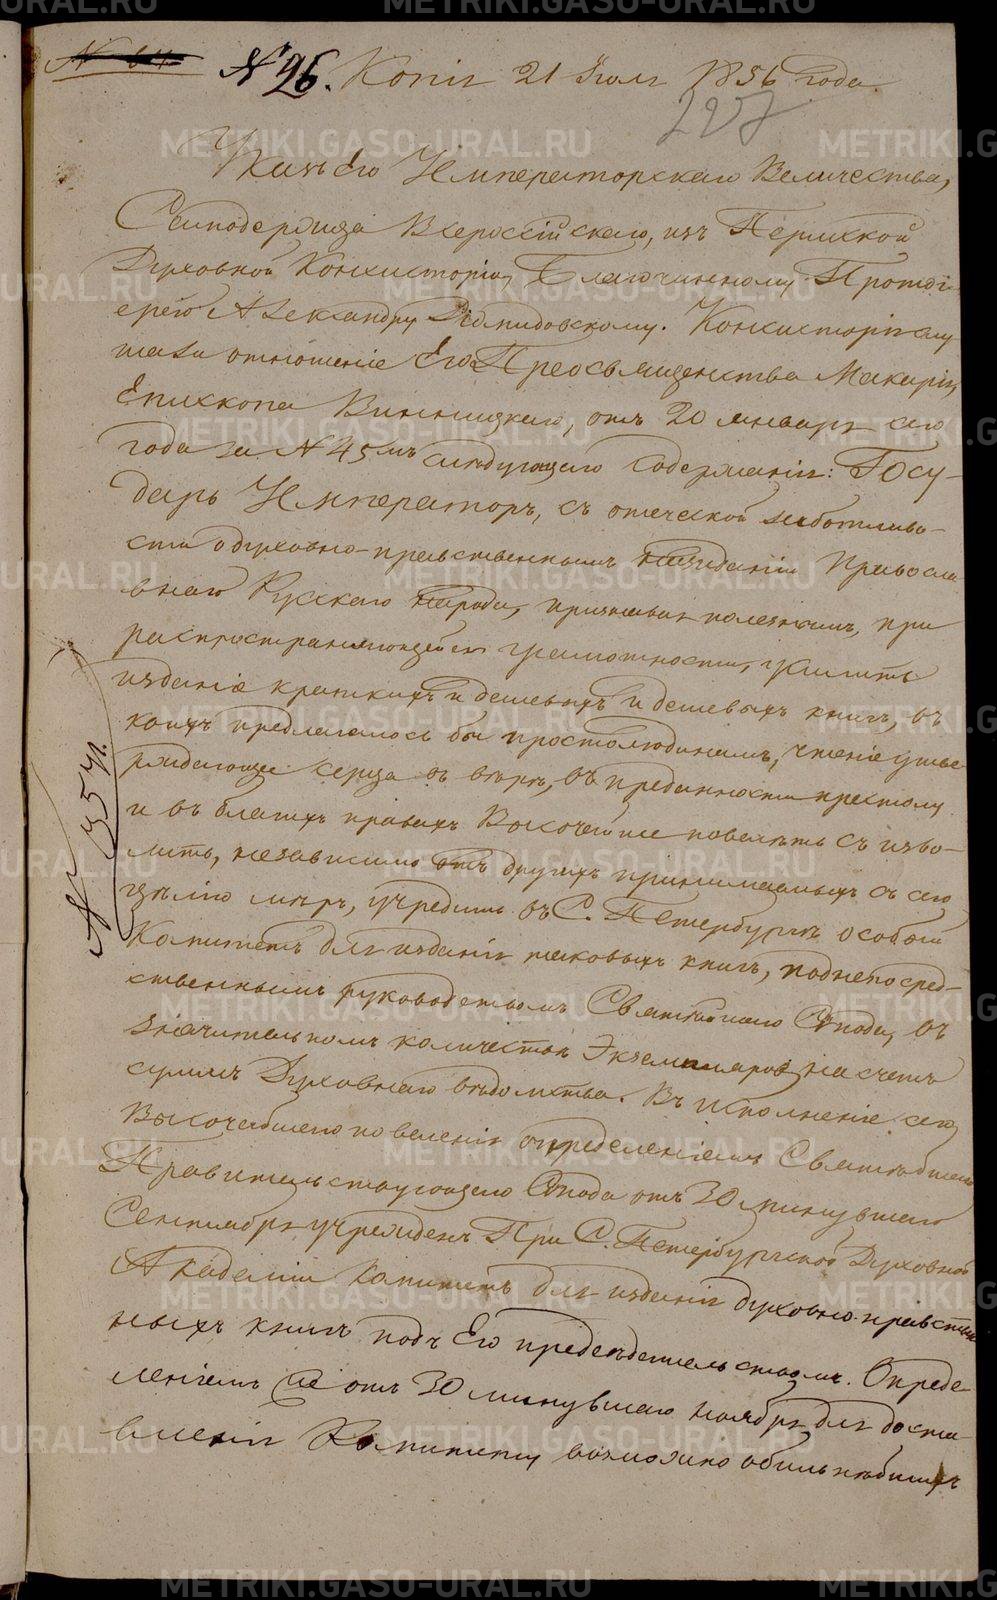 № 26. Копія 21 Іюля 1856 года.
227
Указъ Его Императорскаго Величества,
Самодержца Всероссійскаго, изъ Пермской
Духовной Консисторіи, Благочинному Протоі-
ерею Александру Діомидовскому. Консисторія слу
шала отношеніе Его Преосвященства Макарія,
Епископа Винницкаго, отъ 20 января сего
года за № 45мъ слѣдующаго содержанія: Госу-
дарь Императоръ, съ отеческой заботливо-
сти о духовно-нравственномъ назиданіи Правосла
внаго Русскаго народа, признавая полезнымъ, при
распространяющейся грамотности, усилить
изданіе краткихъ и дешевыхъ и дешевыхъ книгъ, въ
коихъ предлагалось бы простолюдинамъ, чтеніе утве
рждающее сердца въ вѣрѣ, въ преданности престолу
и въ благихъ нравахъ Высочайше повелѣть съ изво-
лилъ, независимо отъ другихъ принимаемыхъ съ сею
цѣлію мѣръ, учредить въ С. Петербургѣ особый
Комитетъ для изданія таковыхъ книгъ, подъ непосред-
ственнымъ руководствомъ Святѣйшаго Сѵнода, въ
значительномъ количествѣ Экземпляровъ на счетъ
суммъ Духовнаго вѣдомства. Въ исполненіе сего
Высочайшаго повеленія опредѣленіемъ Святѣйшаго
Правительствующаго Сѵнода отъ 30 минувшаго
Сентября учрежденъ При С. Петербургской Духовной
Академіи Комитетъ для изданія духовно-нравствен
ныхъ книгъ подъ Его предсѣдательствомъ. Опреде-
леніемъ же отъ 30 минувшаго ноября для доста-
вленія Комитету возможно обильнѣйшихъ
№ 357.
METRIKI.GASO-URAL.RU